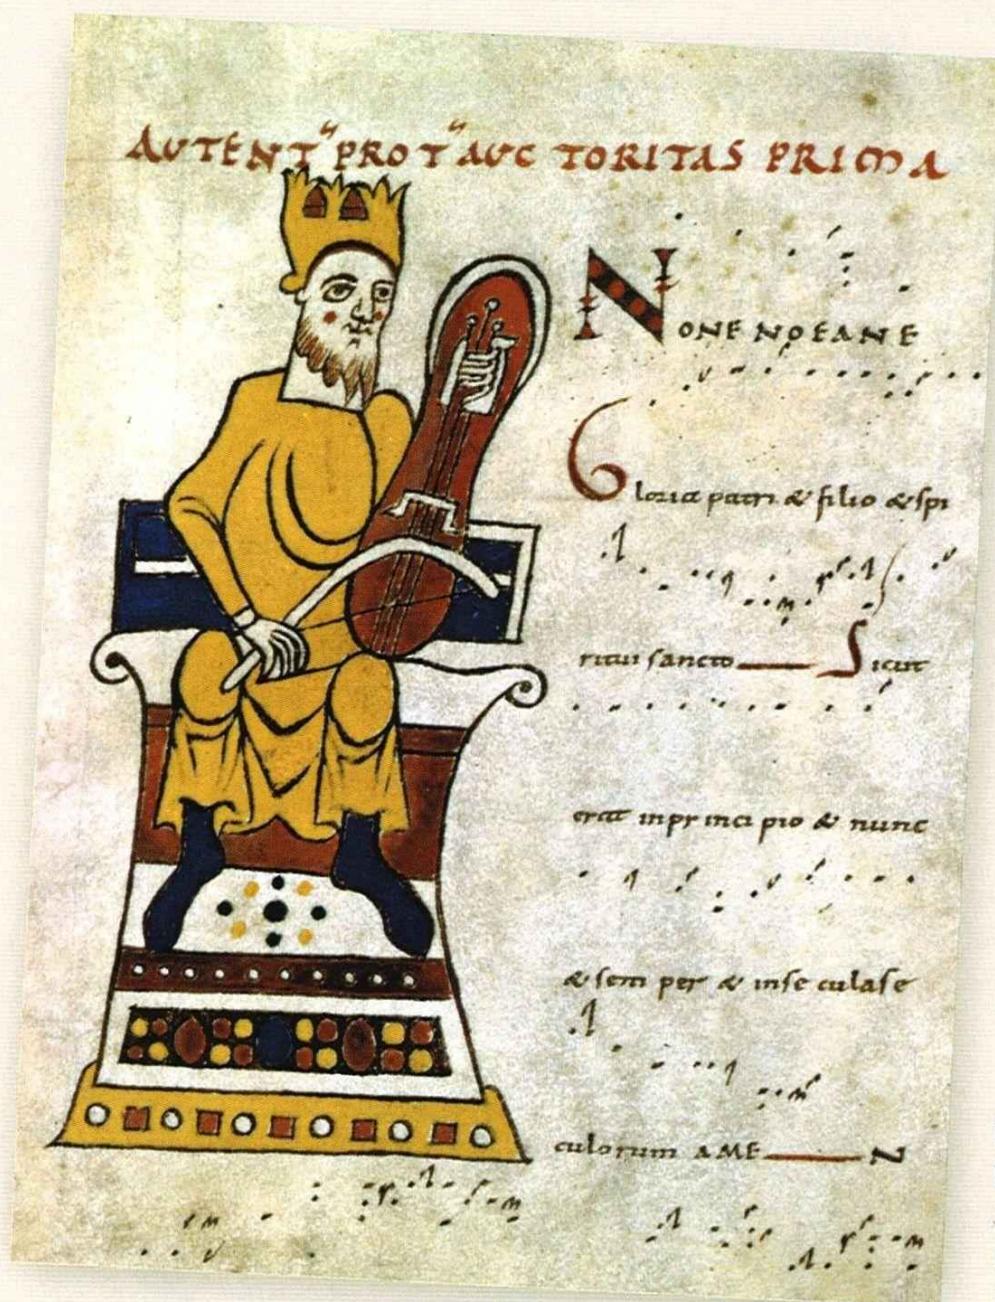 AUTENT" PROT" AUCTORITAS PRIMA
NONENOEANE
Gloria patri & filio & spi
ritui sancto Sicut
erat inprincipio & nunc
& semper & inseculase
culorum AMEN